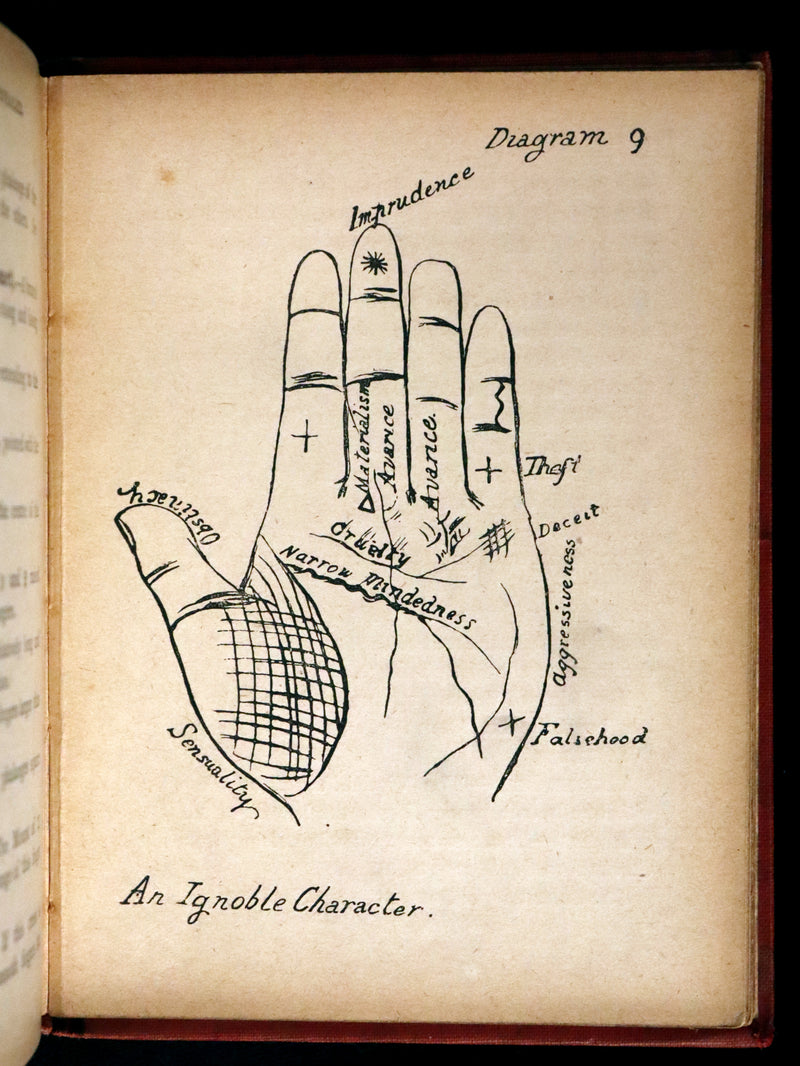 Diagram 9
Imprudence
Materialism
Avarice
Avarice.
Theft
Obstinacy
Deceit
Cruelty
Narrow Mindedness
Aggressiveness
Falsehood
Sensuality
An Ignoble Character.